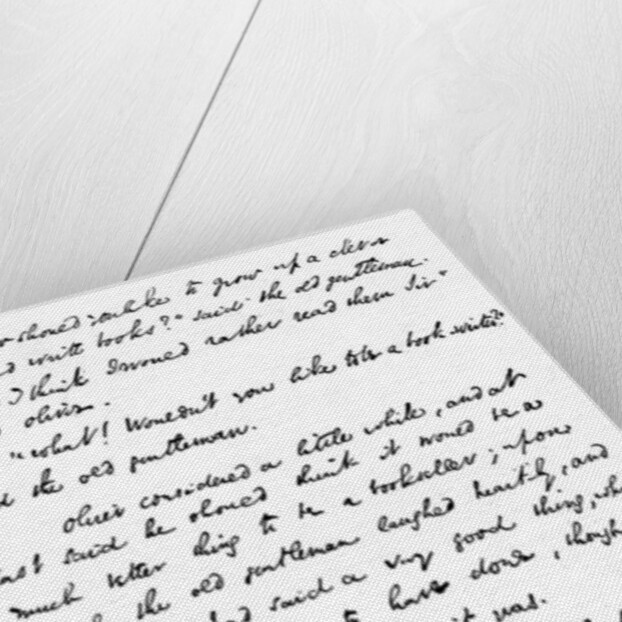 should like to grow up a clever
write books?" said the old gentleman.
I think I would rather read them Sir"
Oliver.
"what! Wouldn't you like to be a book writer?"
the old gentleman.
Oliver considered a little while, and at
last said he should think it would be a
much better thing to be a bookseller; upon
the old gentleman laughed heartily, and
said a very good thing, which
to have done, though
it was.